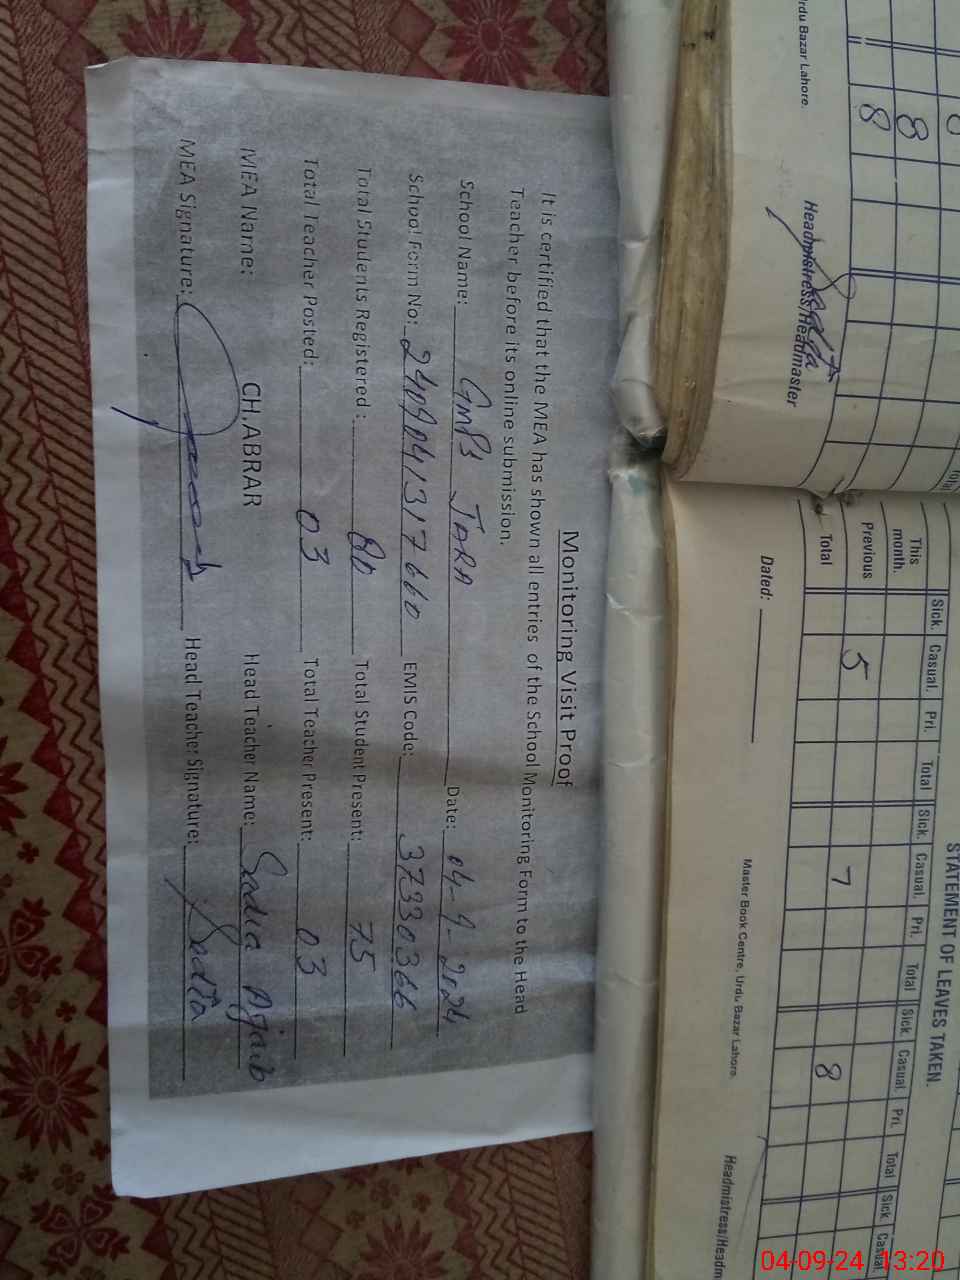 Monitoring Visit Proof
It is certified that the MEA has shown all entries of the School Monitoring Form to the Head
Teacher before its online submission.
School Name: GMPS JARA Date: 04-9-2024
School Form No: 2409041317660 EMIS Code: 37330366
Total Students Registered: 80 Total Student Present: 75
Total Teacher Posted: 03 Total Teacher Present: 03
MEA Name: CH.ABRAR Head Teacher Name: Sadia Ajaib
MEA Signature: Head Teacher Signature: Sadia
8
8
Urdu Bazar Lahore.
Headmistress/Headmaster
Sadia
STATEMENT OF LEAVES TAKEN.
Sick. Casual. Pri. Total Sick. Casual. Pri. Total Sick. Casual. Pri. Total Sick. Casual.
This month.
Previous 5 7 8
Total
Dated:
Master Book Centre, Urdu Bazar Lahore.
Headmistress/Headm
04-09-24 13:20